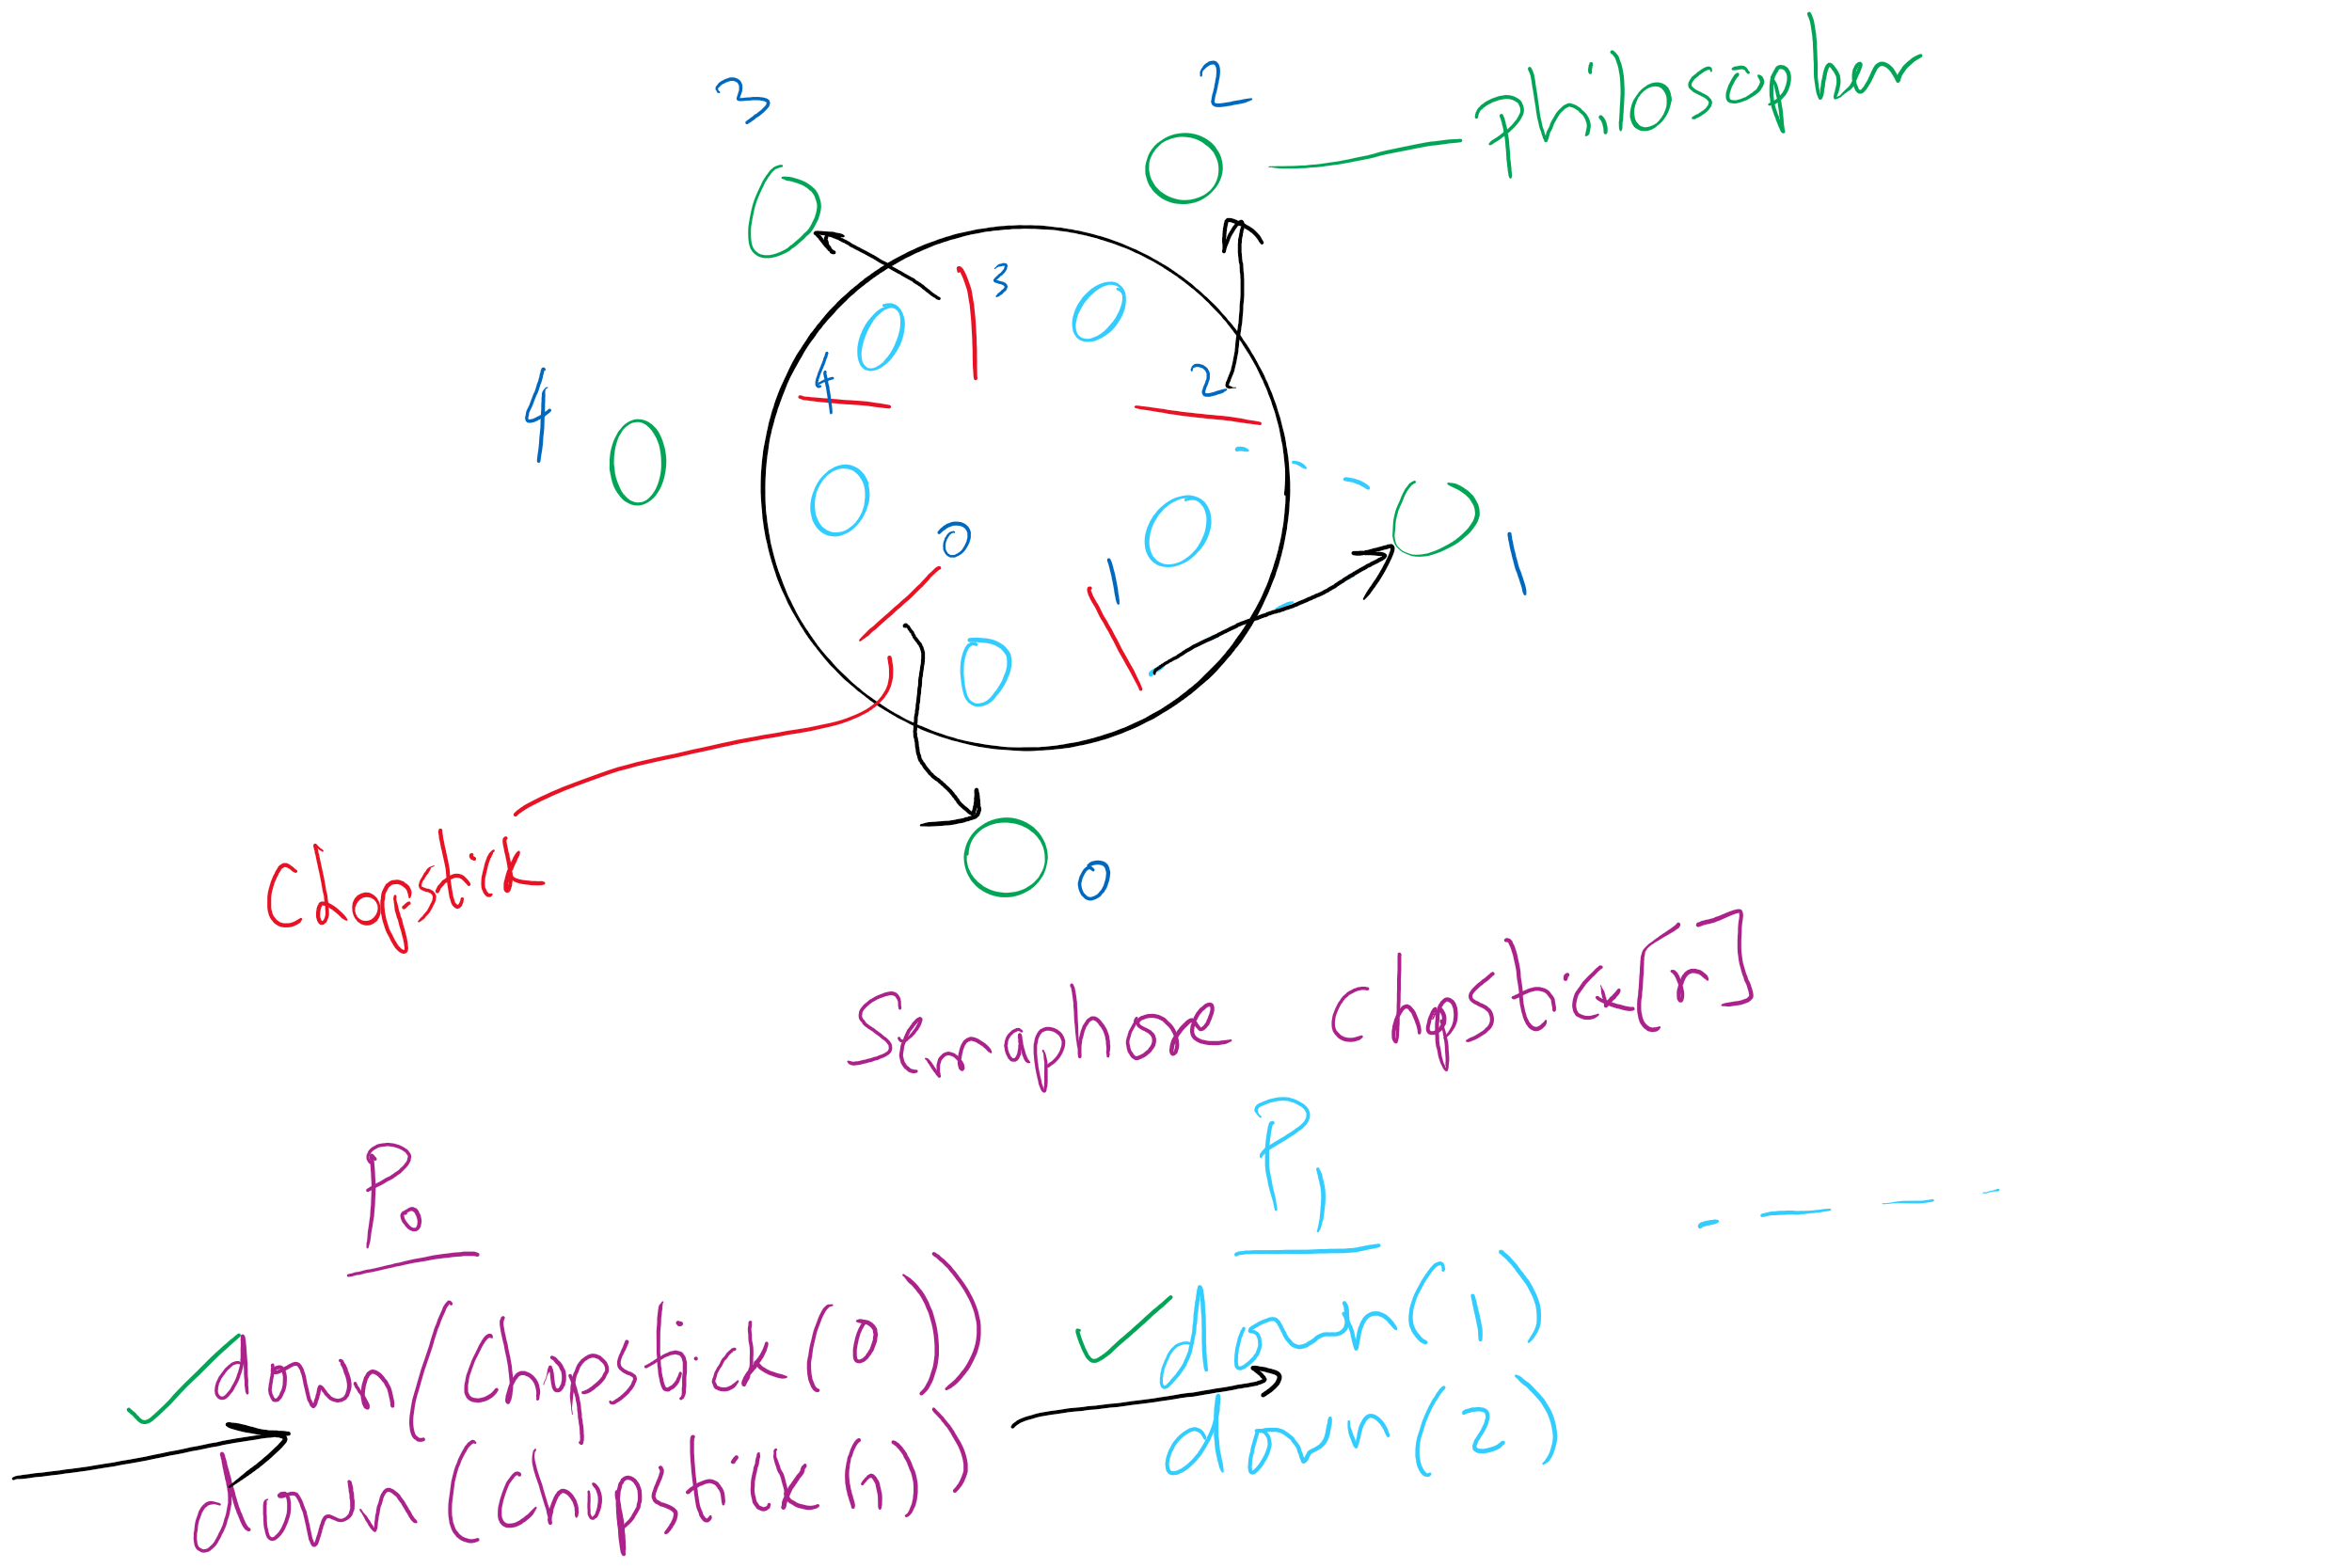 3
2
Philosopher
3
2
4
4
0
1
1
Chopstick
0
Semaphore chpstick[n]
P0
P1
down(chpstick(0))
down(1)
down(chpstick(1))
down(2)